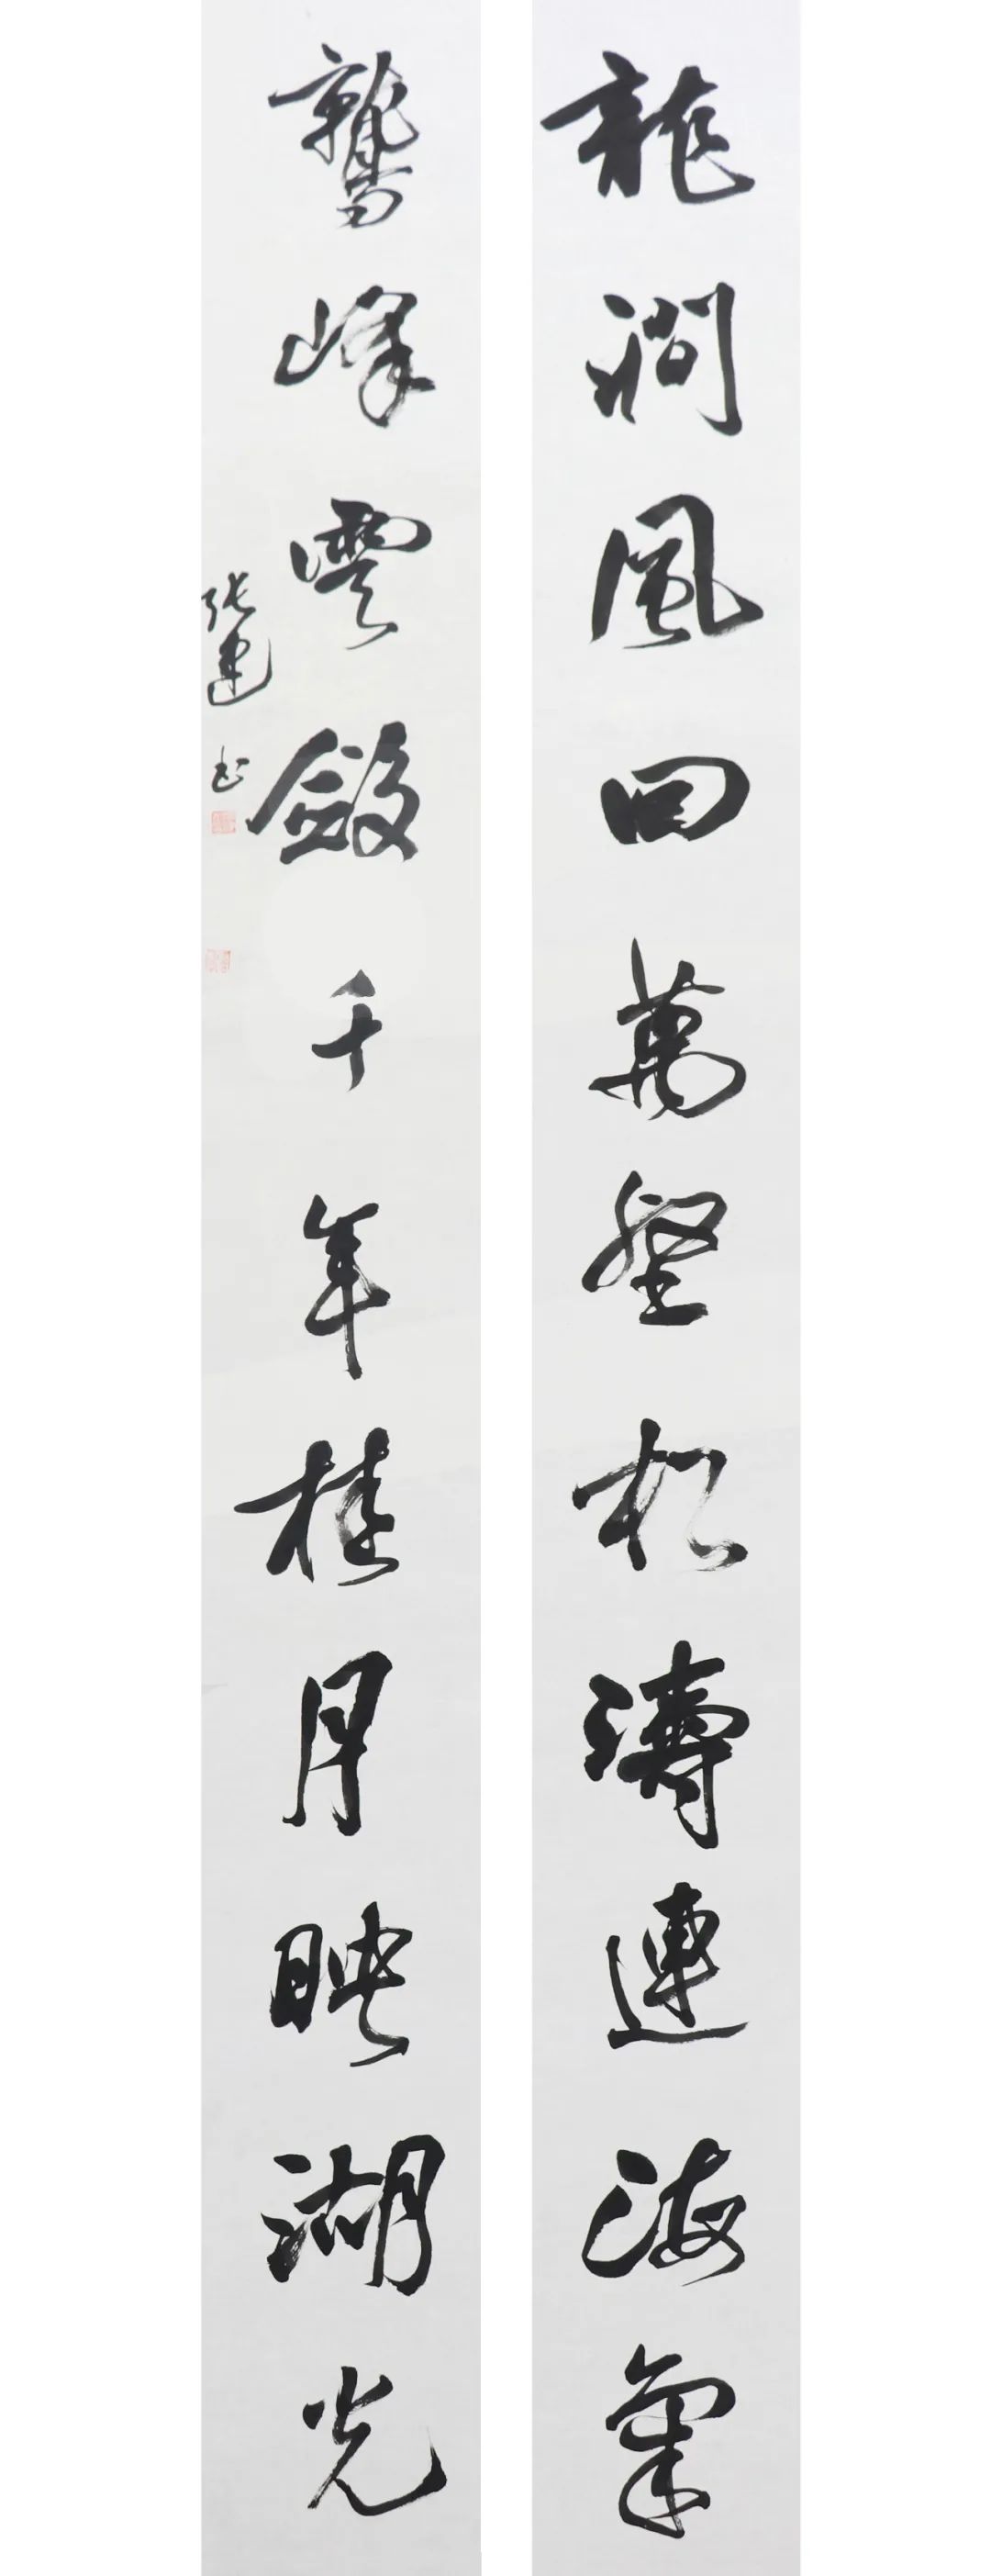 龍澗風回萬壑松濤連海氣
鷲峰雲斂千年桂月映湖光
張建書